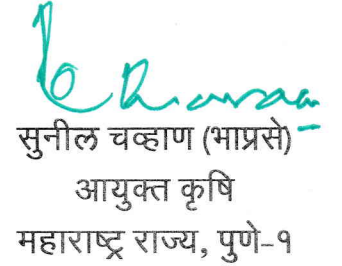 सुनील चव्हाण (भाप्रसे)
आयुक्त कृषि
महाराष्ट्र राज्य, पुणे-१